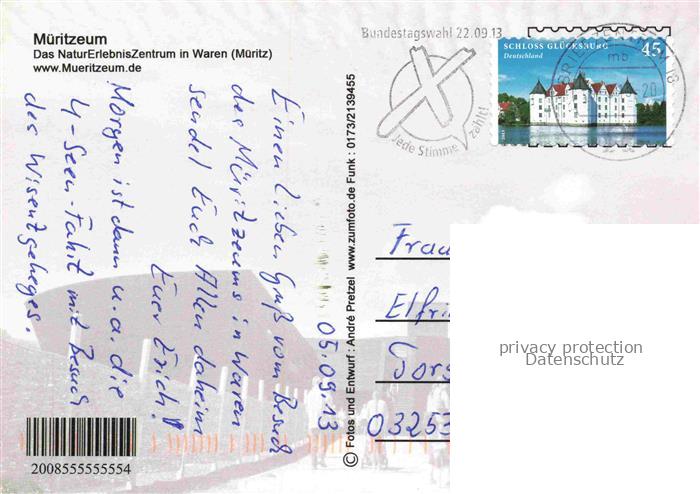 Müritzeum
Das NaturErlebnisZentrum in Waren (Müritz)
www.Mueritzeum.de
Bundestagswahl 22.09.13
Jede Stimme zählt!
SCHLOSS GLÜCKSBURG
Deutschland
45
BRIEF
mb
18
20
05.09.13
Einen lieben Gruß vom Besuch
des Müritzeums in Waren
sendet Euch Allen daheim
Euer Erich!
Morgen ist dann u.a. die
4-Seen-Fahrt mit Besuch
des Wisentgeheges.
© Fotos und Entwurf : André Pretzel www.zumfoto.de Funk : 0173/2139455
Frau
Elfri
Tors
03253
privacy protection
Datenschutz
2008555555554